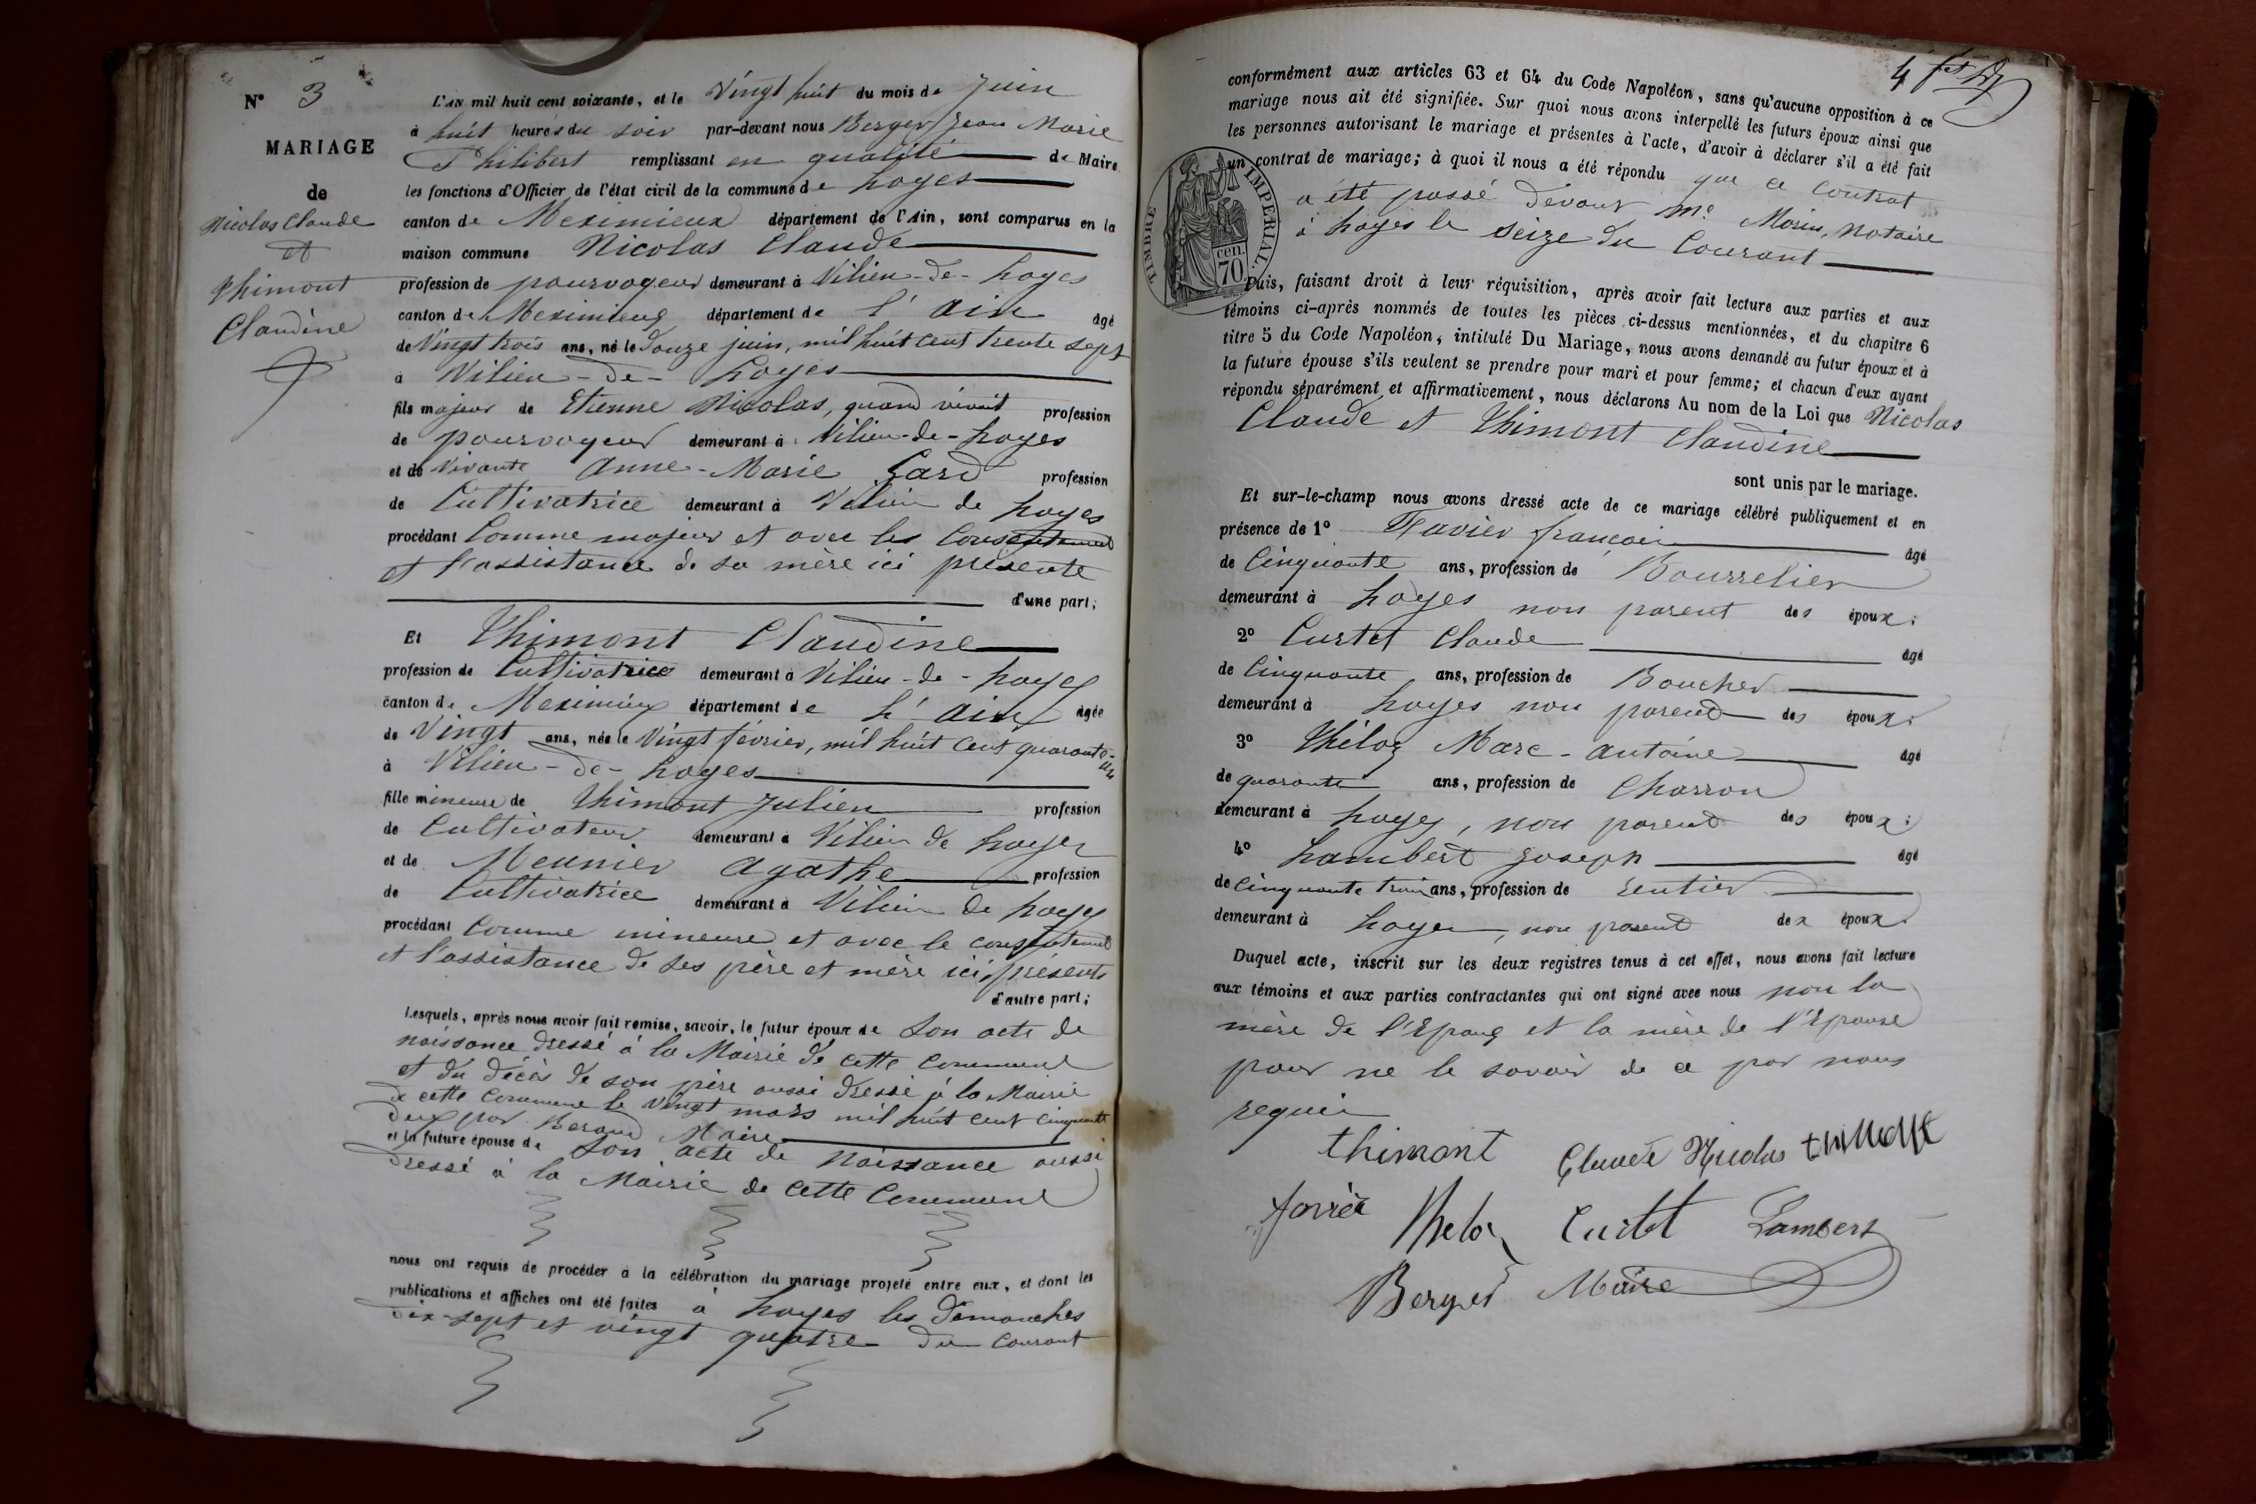 N° 3
MARIAGE
de
Nicolas Claude
et
Thimont
Claudine
L'AN mil huit cent soixante, et le Vingt huit du mois de Juin
à huit heures du soir par-devant nous Berger Jean Marie
Philibert remplissant en qualité de Maire
les fonctions d'Officier de l'état civil de la commune de Loyes
canton de Meximieux département de l'Ain, sont comparus en la
maison commune Nicolas Claude
profession de pourvoyeur demeurant à Vilieu-de-Loyes
canton de Meximieux département de l'Ain âgé
de Vingt trois ans, né le Douze juin, mil huit cent trente sept
à Vilieu-de-Loyes
fils majeur de Etienne Nicolas, quand vivait profession
de pourvoyeur demeurant à Vilieu-de-Loyes
et de vivante Anne-Marie Gard profession
de Cultivatrice demeurant à Vilieu de Loyes
procédant Comme majeur et avec les Consentement
et l'assistance de sa mère ici présente
d'une part;
Et Thimont Claudine
profession de Cultivatrice demeurant à Vilieu-de-Loyes
canton de Meximieux département de L'Ain âgée
de Vingt ans, née le Vingt février, mil huit cent quarante-
à Vilieu-de-Loyes
fille mineure de Thimont Julien profession
de Cultivateur demeurant à Vilieu de Loyes
et de Meunier Agathe profession
de Cultivatrice demeurant à Vilieu de Loyes
procédant Comme mineure et avec le consentement
et l'assistance de ses père et mère ici présents
d'autre part;
Lesquels, après nous avoir fait remise, savoir, le futur époux de Son acte de
naissance dressé à la Mairie de cette Commune
et du décès de son père aussi dressé à la Mairie
de cette Commune le vingt mars mil huit cent cinquante
deux par Beraud Maire
et la future épouse de Son acte de naissance aussi
dressé à la Mairie de cette Commune
nous ont requis de procéder à la célébration du mariage projeté entre eux, et dont les
publications et affiches ont été faites à Loyes les Dimanches
dix-sept et vingt quatre du Courant
conformément aux articles 63 et 64 du Code Napoléon, sans qu'aucune opposition à ce
mariage nous ait été signifiée. Sur quoi nous avons interpellé les futurs époux ainsi que
les personnes autorisant le mariage et présentes à l'acte, d'avoir à déclarer s'il a été fait
un contrat de mariage; à quoi il nous a été répondu que ce Contrat
a été passé devant Me Morin, Notaire
à Loyes le Seize du Courant
TIMBRE IMPERIAL.
cen.
70
Puis, faisant droit à leur réquisition, après avoir fait lecture aux parties et aux
témoins ci-après nommés de toutes les pièces ci-dessus mentionnées, et du chapitre 6
titre 5 du Code Napoléon, intitulé Du Mariage, nous avons demandé au futur époux et à
la future épouse s'ils veulent se prendre pour mari et pour femme; et chacun d'eux ayant
répondu séparément et affirmativement, nous déclarons Au nom de la Loi que Nicolas
Claude et Thimont Claudine
sont unis par le mariage.
Et sur-le-champ nous avons dressé acte de ce mariage célébré publiquement et en
présence de 1° Favier françois âgé
de Cinquante ans, profession de Bourrelier
demeurant à Loyes non parent des époux;
2° Curtet Claude âgé
de Cinquante ans, profession de Boucher
demeurant à Loyes non parent des époux;
3° Théloz Marc-Antoine âgé
de quarante ans, profession de Charron
demeurant à Loyes, non parent des époux;
4° Lambert Joseph âgé
de Cinquante trois ans, profession de rentier
demeurant à Loyes, non parent des époux
Duquel acte, inscrit sur les deux registres tenus à cet effet, nous avons fait lecture
aux témoins et aux parties contractantes qui ont signé avec nous non la
mère de l'Epoux et la mère de l'Epouse
pour ne le savoir de ce par nous
requis
thimont Claude Nicolas
favier Theloz Curtet Lambert
Berger Maire